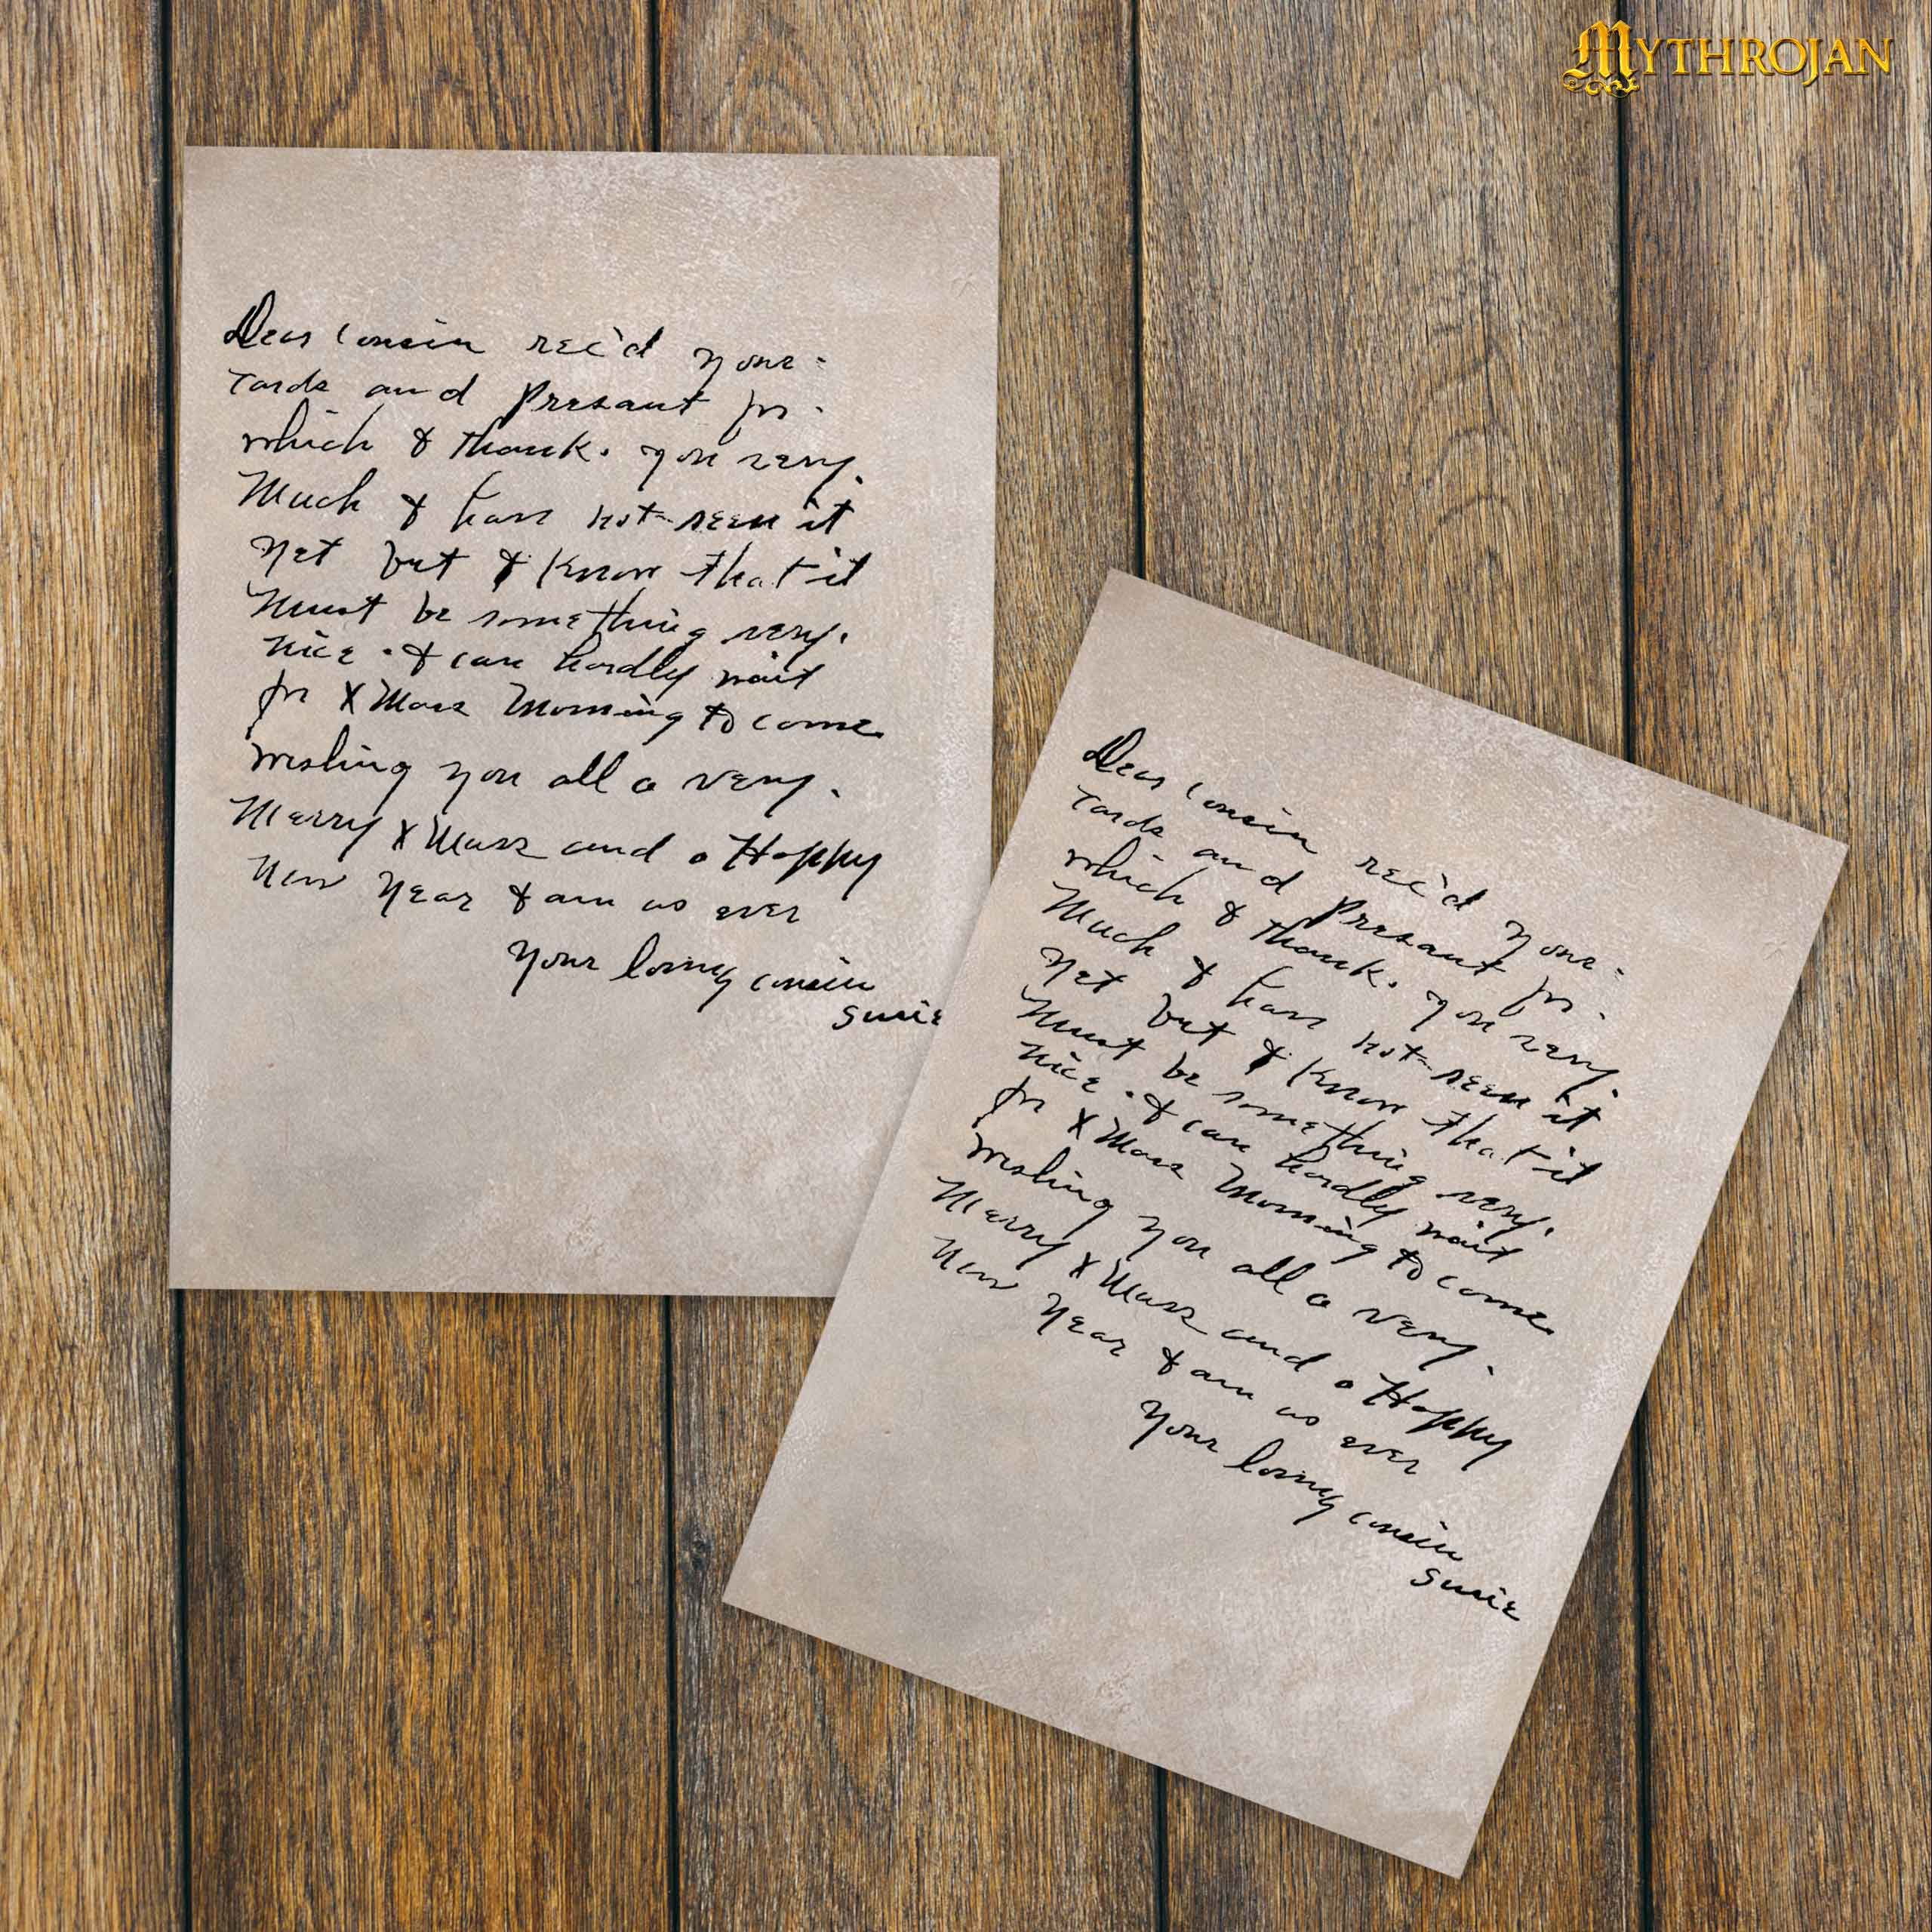 MYTHROJAN
Dear Cousin rec'd your
cards and Presant for
which I thank. you very.
Much I have not seen it
yet but I know that it
Must be something very.
nice. I can hardly wait
for X Mass Morning to come
wishing you all a very.
Merry X Mass and a Happy
New Year I am as ever
Your loving cousin
Susie
Dear Cousin rec'd your
cards and Presant for
which I thank. you very.
Much I have not seen it
yet but I know that it
Must be something very.
nice. I can hardly wait
for X Mass Morning to come
wishing you all a very.
Merry X Mass and a Happy
New Year I am as ever
Your loving cousin
Susie